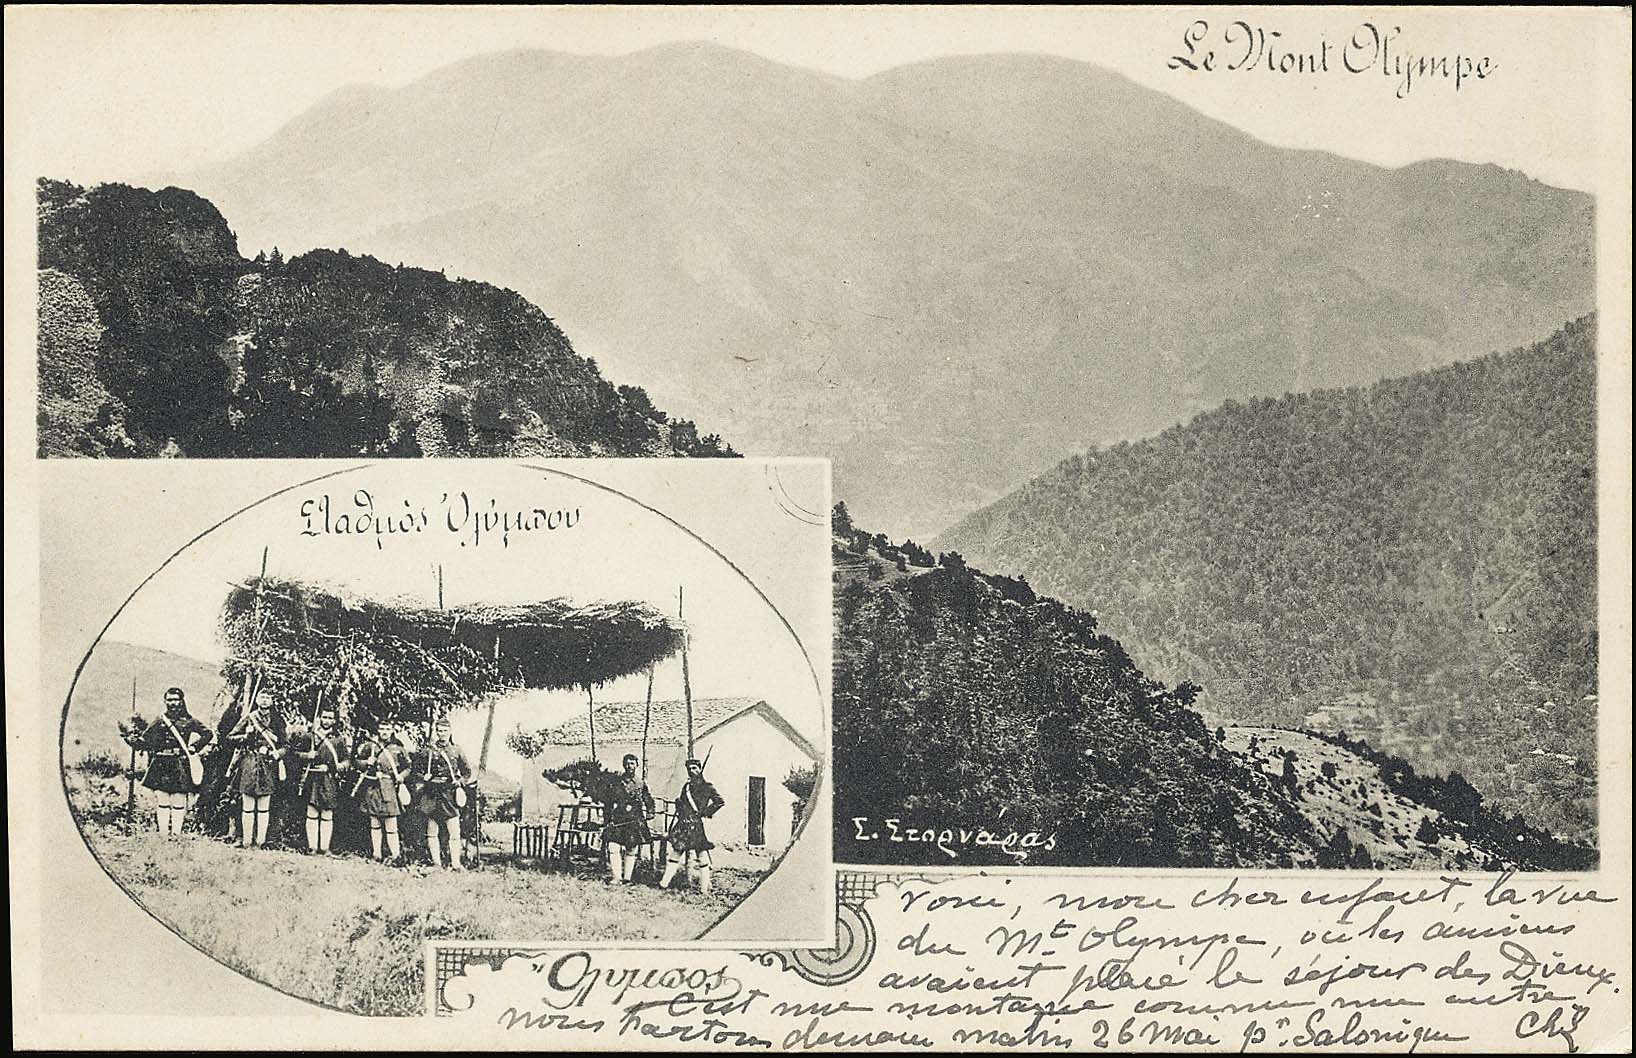 Le Mont Olympe
Σταθμὸς Ὀλύμπου
Σ. Στορνάρας
Ὄλυμπος
Voici, mon cher enfant, la vue
du Mt Olympe, où les anciens
avaient placé le séjour des Dieux.
C'est une montagne comme une autre
nous partons demain matin 26 Mai pr. Salonique